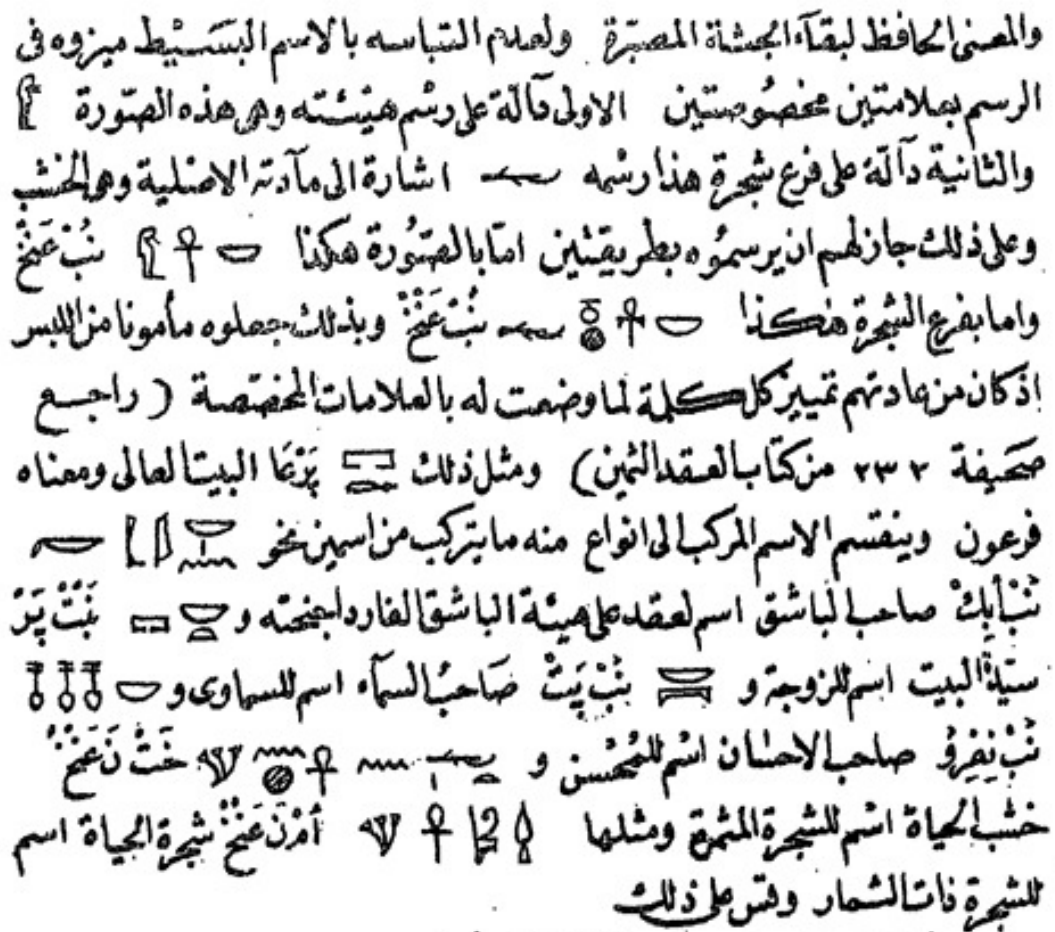 والمعنى الحافظ لبقآء الجثة المصبّرة ولعدم التباسه بالاسم البسيط ميزوه فى
الرسم بعلامتين مخصوصتين الاولى دآلة على رسم هيئته وهى هذه الصّورة
والثانية دآلّة على فرع شجرة هذا رسمه اشارة الى مآدته الاصلية وهو الخشب
وعلى ذلك جاز لهم ان يرسموه بطريقتين امّا بالصّورة هكذا نُبْ عَنْخْ
واما بفرع الشجرة هكذا نُبْ عَنْخْ وبذلك جعلوه مأمونا من اللبس
اذ كان من عادتهم تمييز كل كلمة لما وضعت له بالعلامات المخصصة ( راجع
صحيفة ٢٣٢ من كتاب العقد الثمين) ومثل ذلك پَرْعَا البيت العالى ومعناه
فرعون وينقسم الاسم المركب الى انواع منه ما يتركب من اسمين نحو
نَبْ أبِكْ صاحب الباشق اسم لعقد على هيئة الباشق الفارد اجنحته و نَبْتْ پَرْ
ستيّة البيت اسم للزوجة و نَبْ پَتْ صَاحبُ السمآء اسم للسماوى و
نَبْ نِفِرُو صاحب الاحسان اسْم للمُحْسن و خَتْ نْ عَنْخُ
خشب الحياة اسْم للشجرة المثمرة ومثلها أمْ نْ عَنْخْ شجرة الحياة اسم
للشجرة ذات الثمار وقس على ذلك